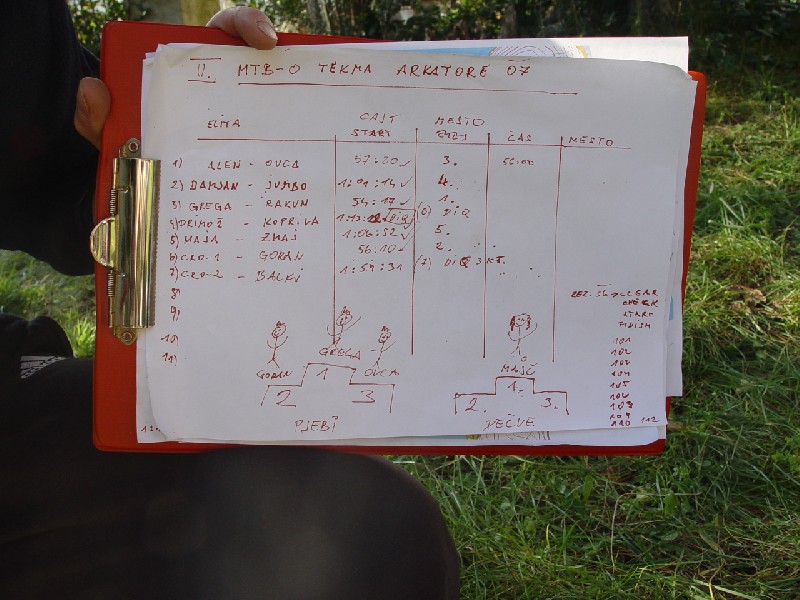 II. MTB-O TEKMA ARKATORE 07
ELITA CAST START MESTO ČAS MESTO
1) ALEN - OVCA 57:20 ✓ 3. 56:00
2) DAMJAN - JUMBO 1:01:14 ✓ 4.
3) GREGA - RAKUN 54:17 ✓ 1.
4) PRIMOŽ - KOPRIVA (6) DIQ
5) MAJA - ZMAJ 1:06:52 ✓ 5.
6) CRO-1 - GORAN 56:10 ✓ 2.
7) CRO-2 - BALKI 1:59:31 (7) DIQ 3 KT.
8)
9)
10)
11)
CLEAR
CHECK
START
FINISH
101
102
103
104
105
106
108
109
110 112
GORAN GREGA OVCA MAJČ
2 1 3 2. 1. 3.
PJEBI DEČVE